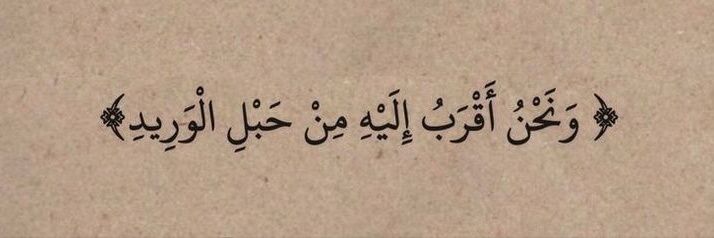 ﴿ وَنَحْنُ أَقْرَبُ إِلَيْهِ مِنْ حَبْلِ الْوَرِيدِ﴾